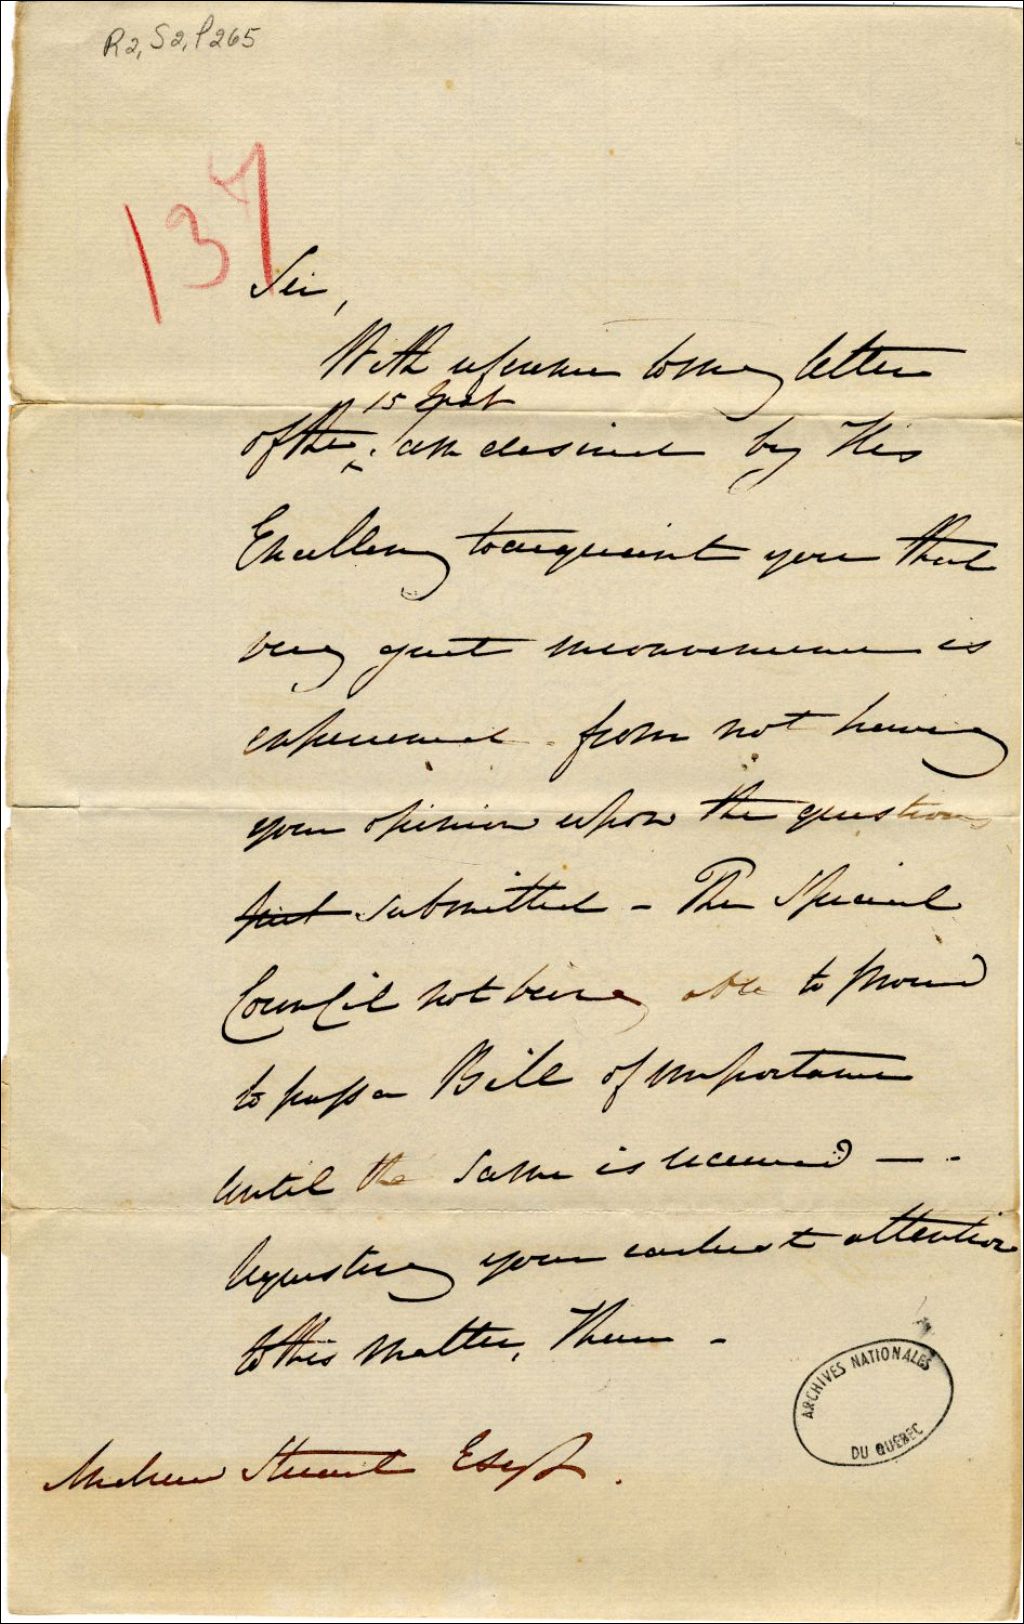 R2, S2, P265
137
Sir,
With reference to my letter
15 Inst
of the ^ I am desired by His
Excellency to acquaint you that
very great inconvenience is
experienced from not having
your opinion upon the questions
submitted – The Special
Council not being able to proceed
to pass a Bill of importance
until the same is received —.
Requesting your earliest attention
to this matter, I have –
ARCHIVES NATIONALES
DU QUÉBEC
Andrew Stuart Esqr.